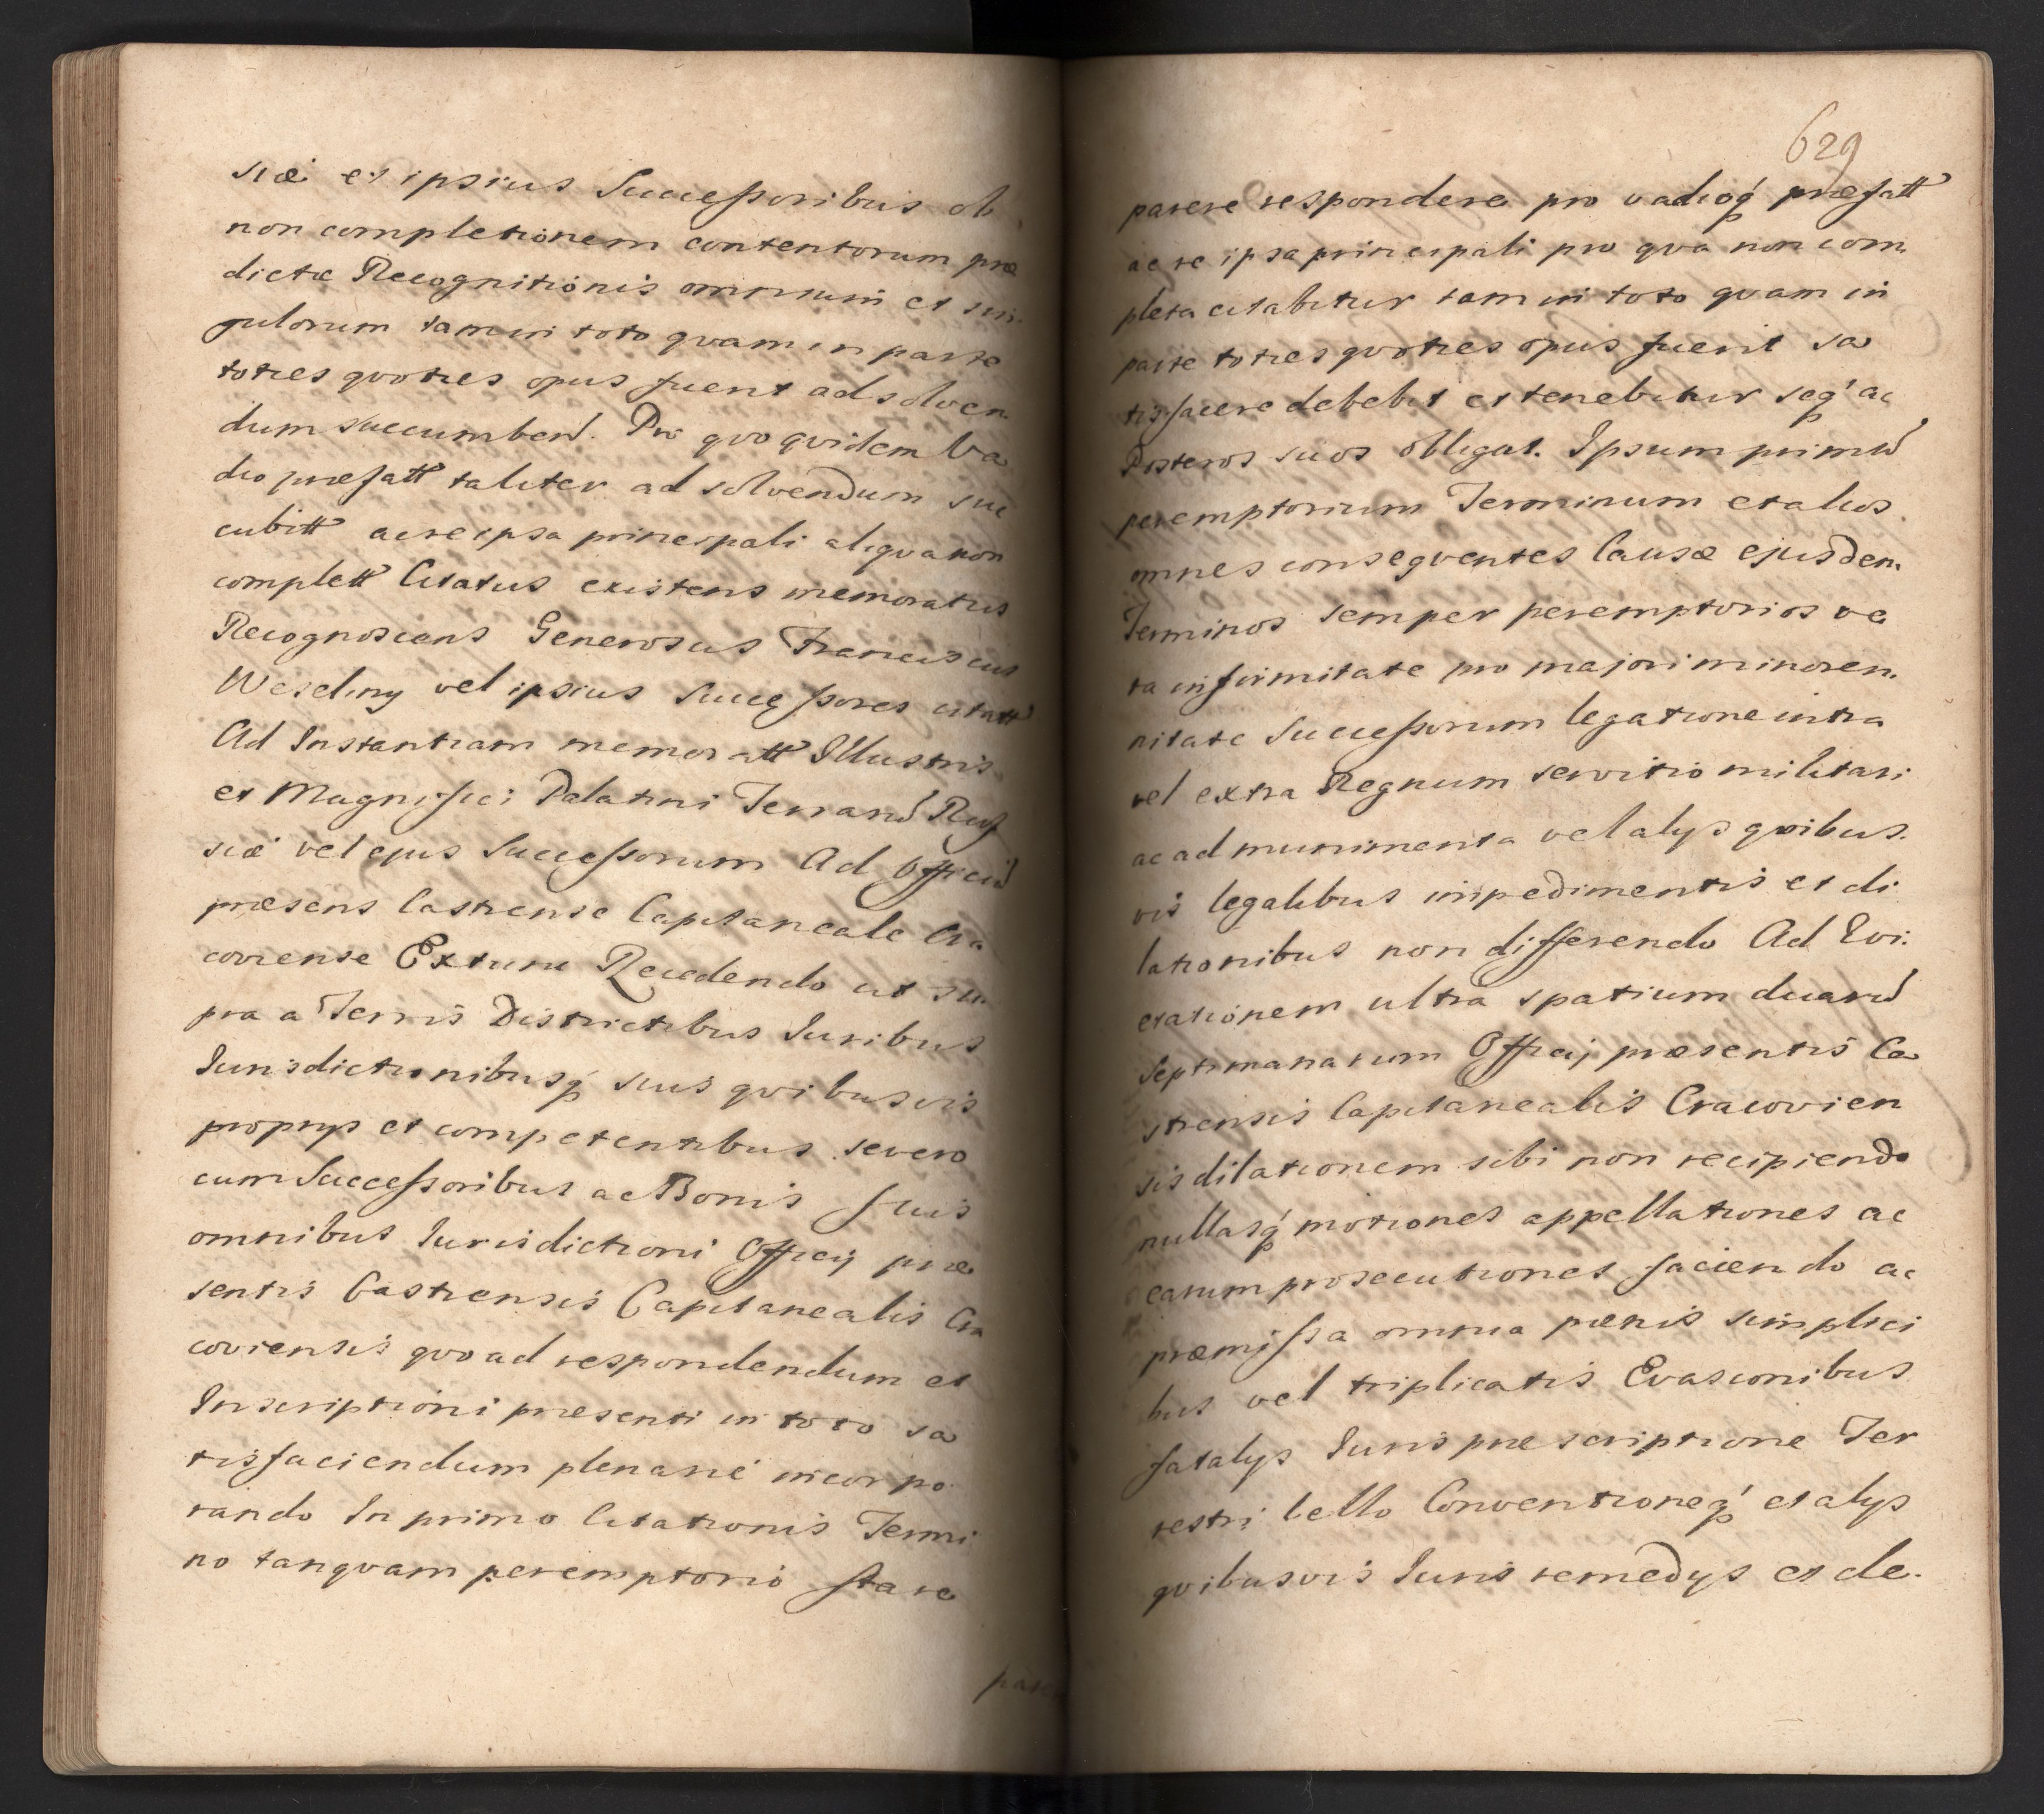 siæ et ipsius Successoribus ob
non completionem contentorum præ
dictæ Recognitionis omnium et sin
gulorum tam in toto qvam in parte
toties qvoties opus fuerit ad solven
dum succumben. Pro qvo qvidem Va
dio præfatt taliter ad solvendum suc
cubitt ac re ipsa principali aliqva non
complett Citatus existens memoratus
Recognoscens Generosus Franciscus
Weseliny vel ipsius Successores citatt
Ad Instantiam memoratt Illustris
et Magnifici Palatini Terrarum Rus
siæ vel ejus Successorum Ad Officium
præsens Castrense Capitaneale Cra
coviense Extunc Recedendo ut su
pra a Terris Districtibus Iuribus
Iurisdictionibusq́ suis qvibusvis
proprys et competentibus se vero
cum Successoribus ac Bonis suis
omnibus Iurisdictioni Officij præ
sentis Castrensis Capitanealis Cra
coviensis qvoad respondendum et
Inscriptioni præsenti in toto sa
tisfaciendum plenarié incorpo
rando In primo Citationis Termi
no tanqvam peremptorio stare
paren
629
parere respondere pro vadioq́ præfatt
ac re ipsa principali pro qva non com
pleta citabitur tam in toto qvam in
parte toties qvoties opus fuerit sa
tisfacere debebit et tenebitur seq́ ac
Posteros suos obligat. Ipsum primum
peremptorium Terminum et alios
omnes conseqventes Causæ ejusdem
Terminos semper peremptorios ve
ra infirmitate pro majori minoren
nitate Successorum legatione intra
vel extra Regnum servitio militari
ac ad munimenta vel alys qvibus
vis legalibus impedimentis et di
lationibus non differendo Ad Evi
ctationem ultra spatium duarum
Septimanarum Officij præsentis Ca
strensis Capitanealis Cracovien
sis dilationem sibi non recipiendo
nullasq́ motiones appellationes ac
earum prosecutiones faciendo ac
præmissa omnia pœnis simplici
bus vel triplicatis Evasionibus
fatalys Iuris præscriptione Ter
restri bello Conventioneq́ et alys
qvibusvis Iuris remedys et de